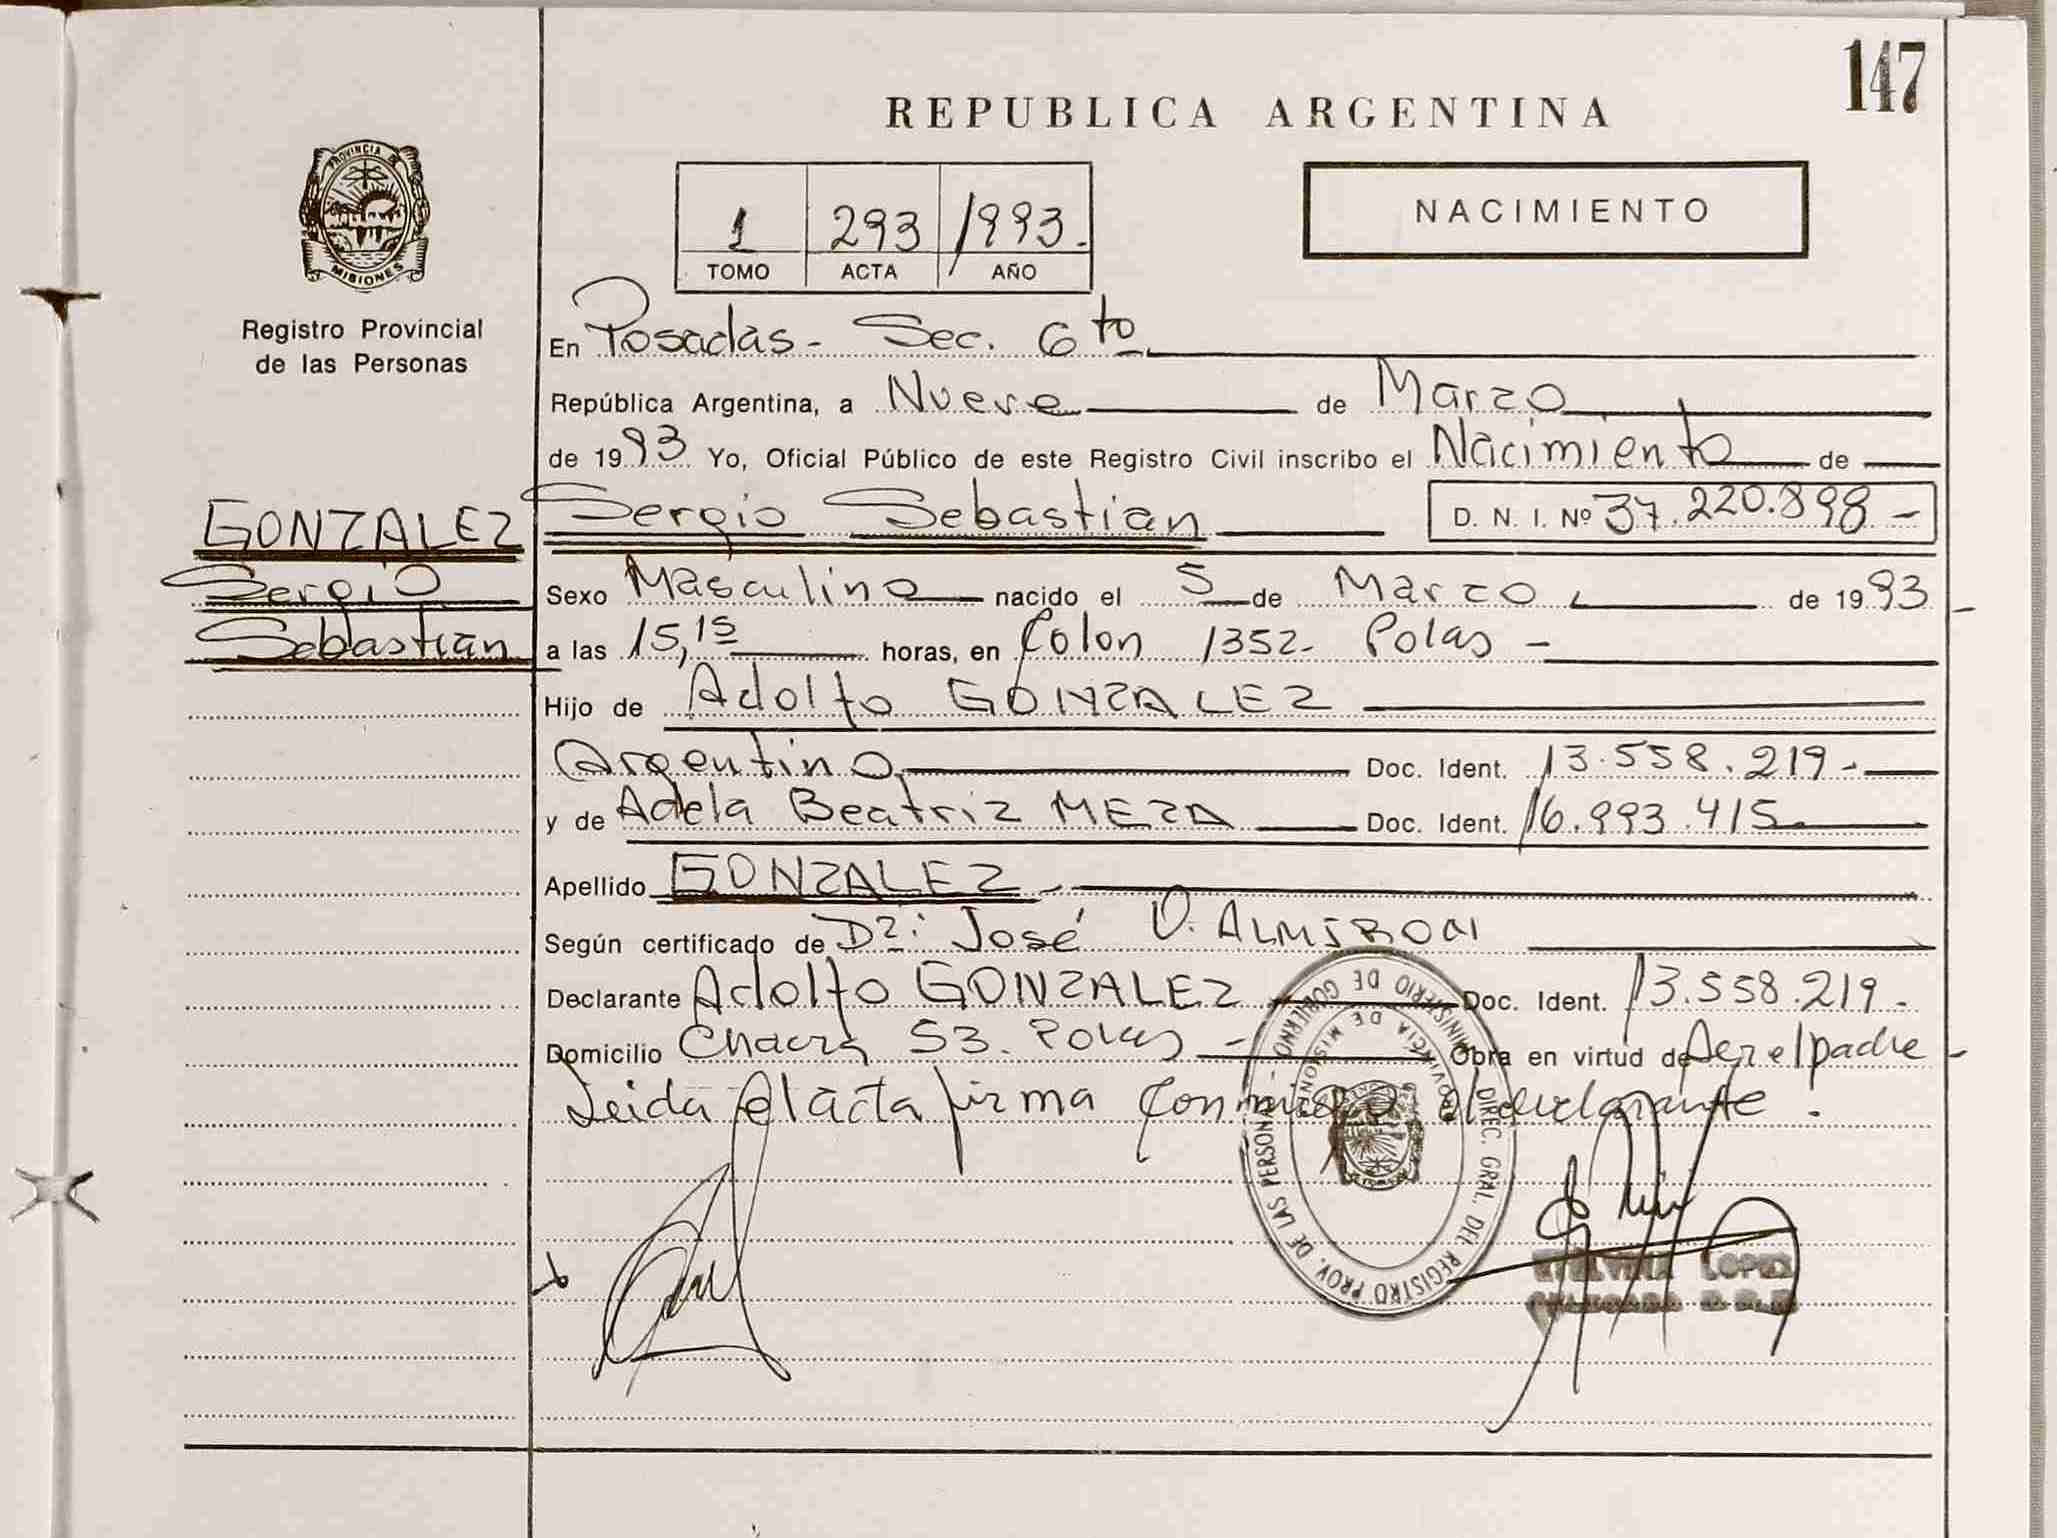 147
REPUBLICA ARGENTINA
PROVINCIA DE
MISIONES
Registro Provincial
de las Personas
1 293 1993.
TOMO ACTA AÑO
NACIMIENTO
En Posadas - Sec. 6to
República Argentina, a Nueve de Marzo
de 1993 Yo, Oficial Público de este Registro Civil inscribo el Nacimiento de
GONZALEZ Sergio Sebastian D. N. I. Nº 37.220.898 -
Sergio Sexo Masculino nacido el 5 de Marzo de 1993
Sebastian a las 15,15 horas, en Colon 1352 - Pdas -
Hijo de Adolfo GONZALEZ
Argentino Doc. Ident. 13.558.219 -
y de Adela Beatriz MEZA Doc. Ident. 16.993.415
Apellido GONZALEZ -
Según certificado de Dr: José V. ALMIRON
Declarante Adolfo GONZALEZ Doc. Ident. 13.558.219 -
Domicilio Chacra 53. Pdas - Obra en virtud de ser el padre -
Leida el acta firma conmigo el declarante.
MINISTERIO DE GOBIERNO - DIREC. GRAL. DEL REGISTRO PROV. DE LAS PERSONAS
PROVINCIA DE MISIONES
LOPEZ